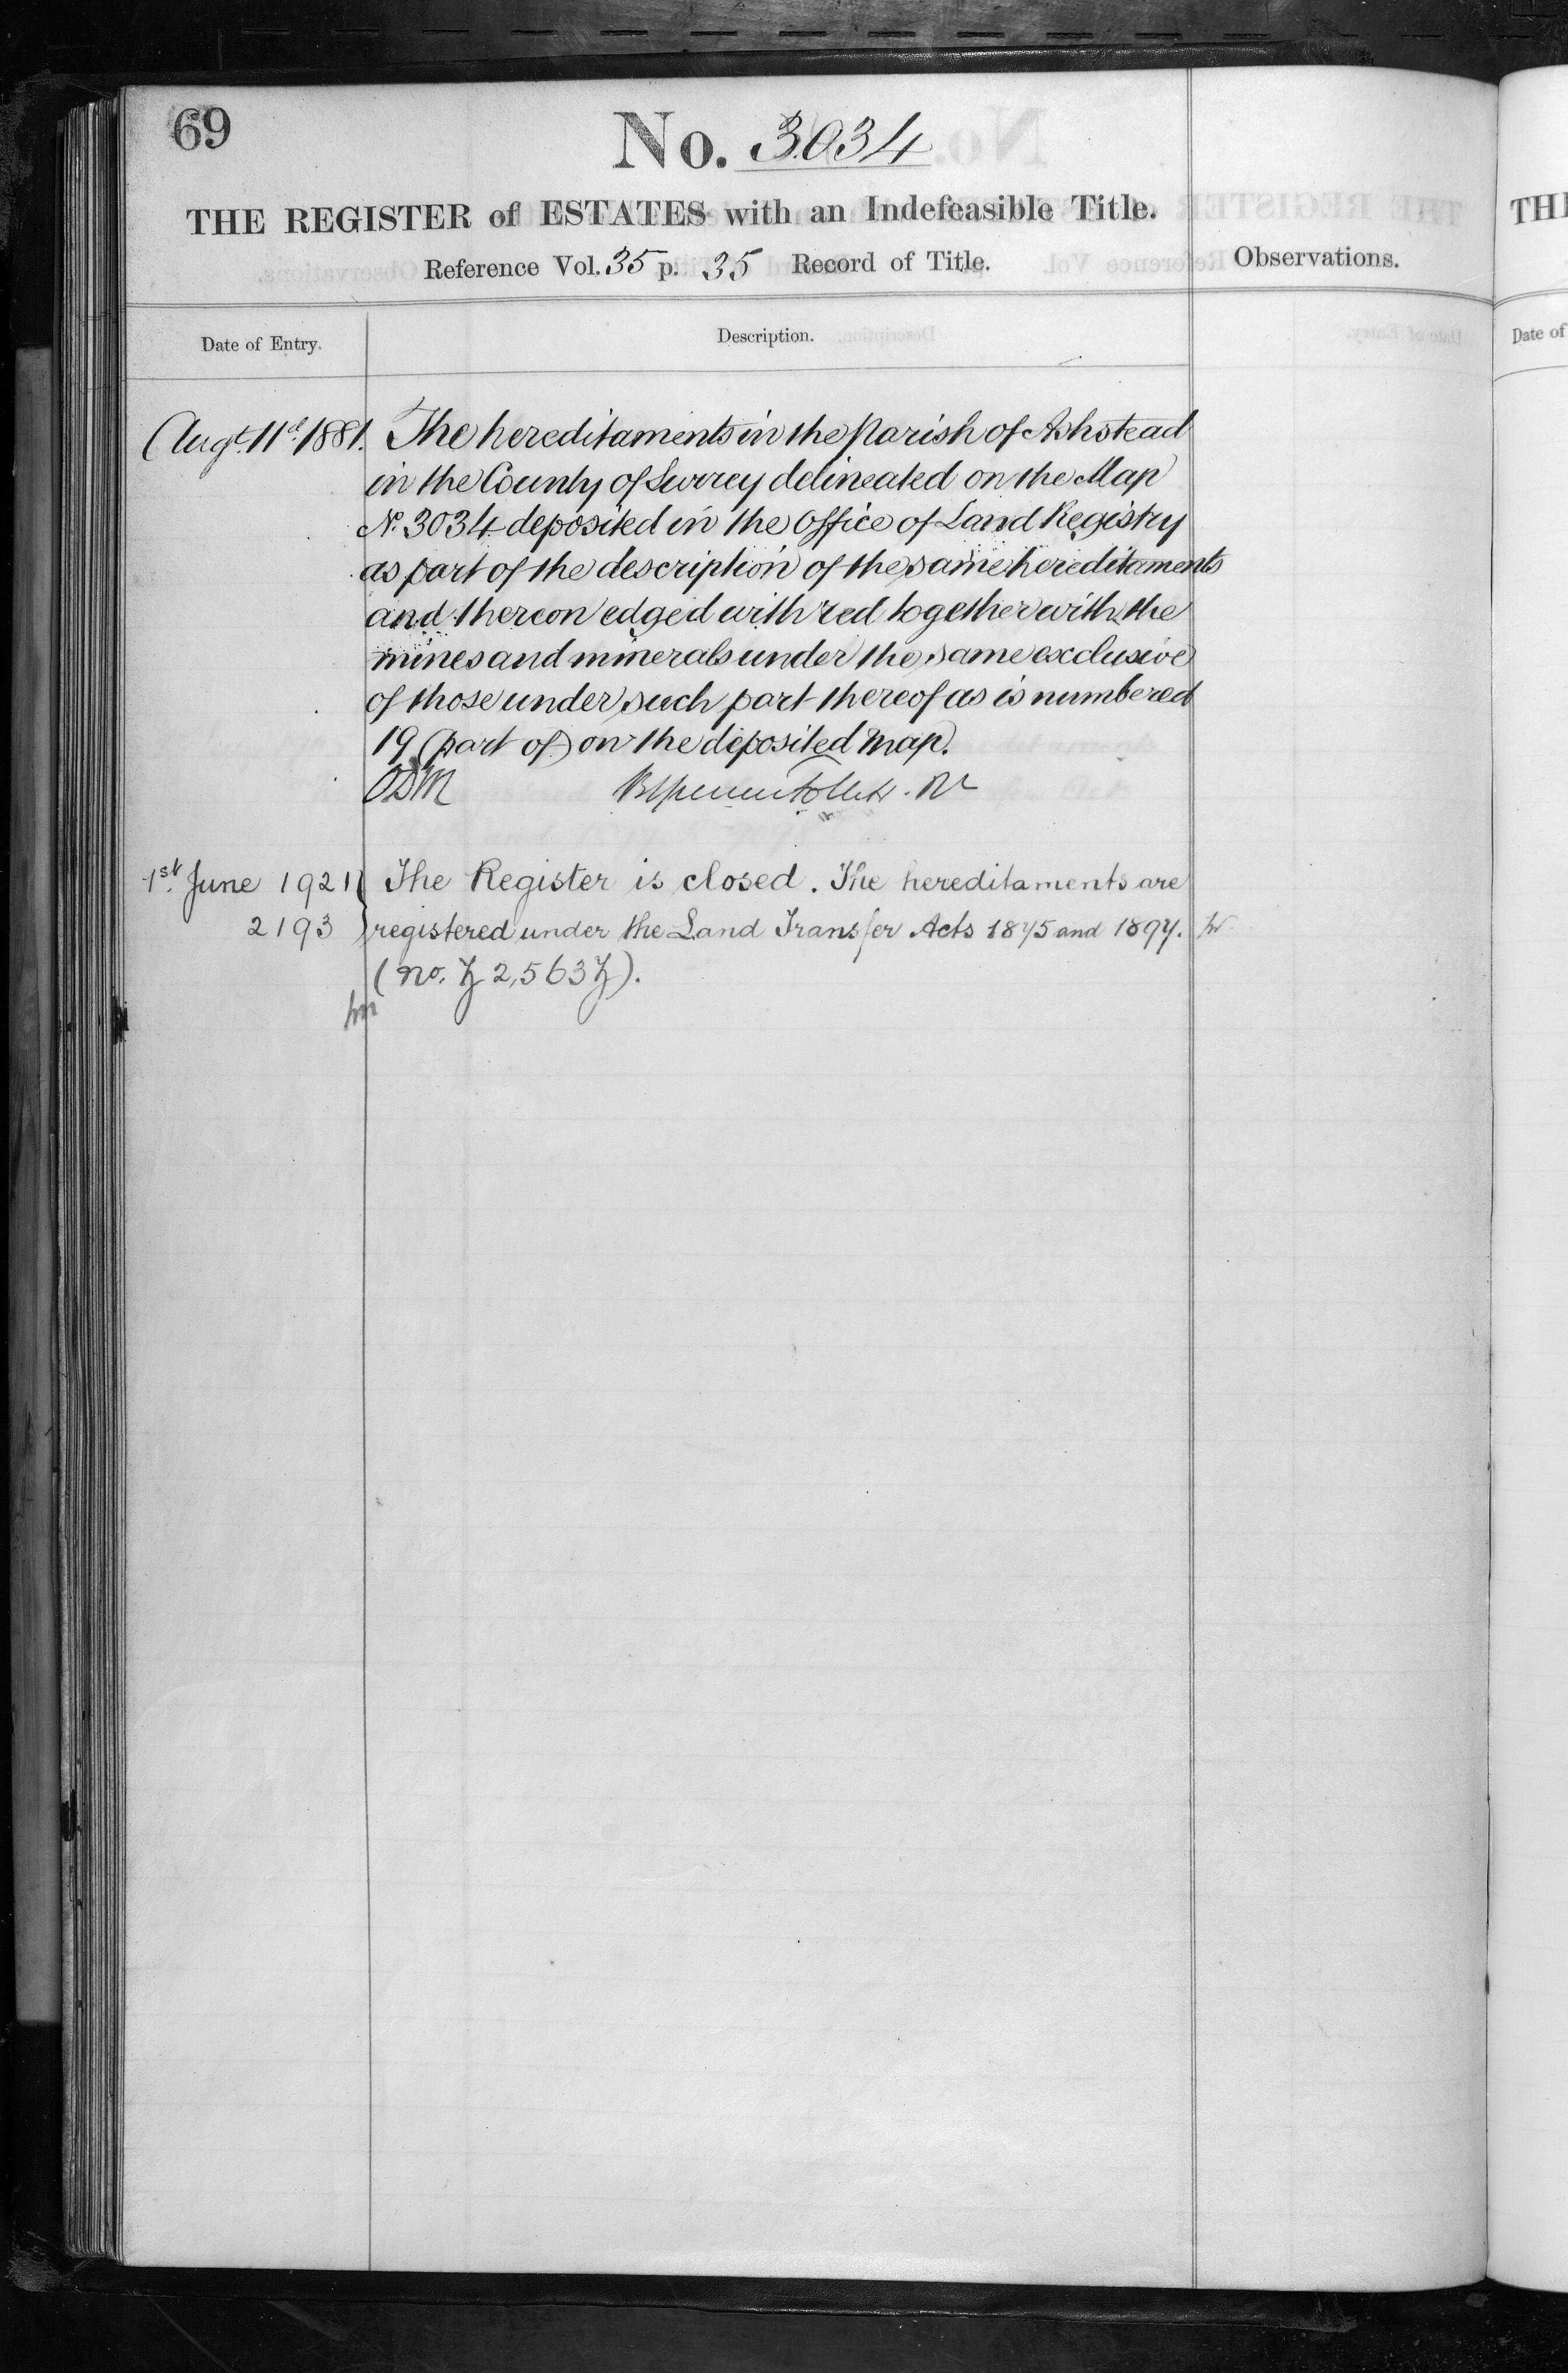 69
No. 3034
THE REGISTER of ESTATES with an Indefeasible Title.
Reference Vol. 35 p. 35 Record of Title.
Observations.
Date of Entry.
Description.
Augt. 11th 1881. The hereditaments in the Parish of Ashstead
in the County of Surrey delineated on the Map
No. 3034 deposited in the Office of Land Registry
as part of the description of the same hereditaments
and thereon edged with red together with the
mines and minerals under the same exclusive
of those under such part thereof as is numbered
19 (part of) on the deposited Map.
1st June 1921 The Register is closed. The hereditaments are
2193 registered under the Land Transfer Acts 1875 and 1897.
(no. 72,5637).
TH
Date of